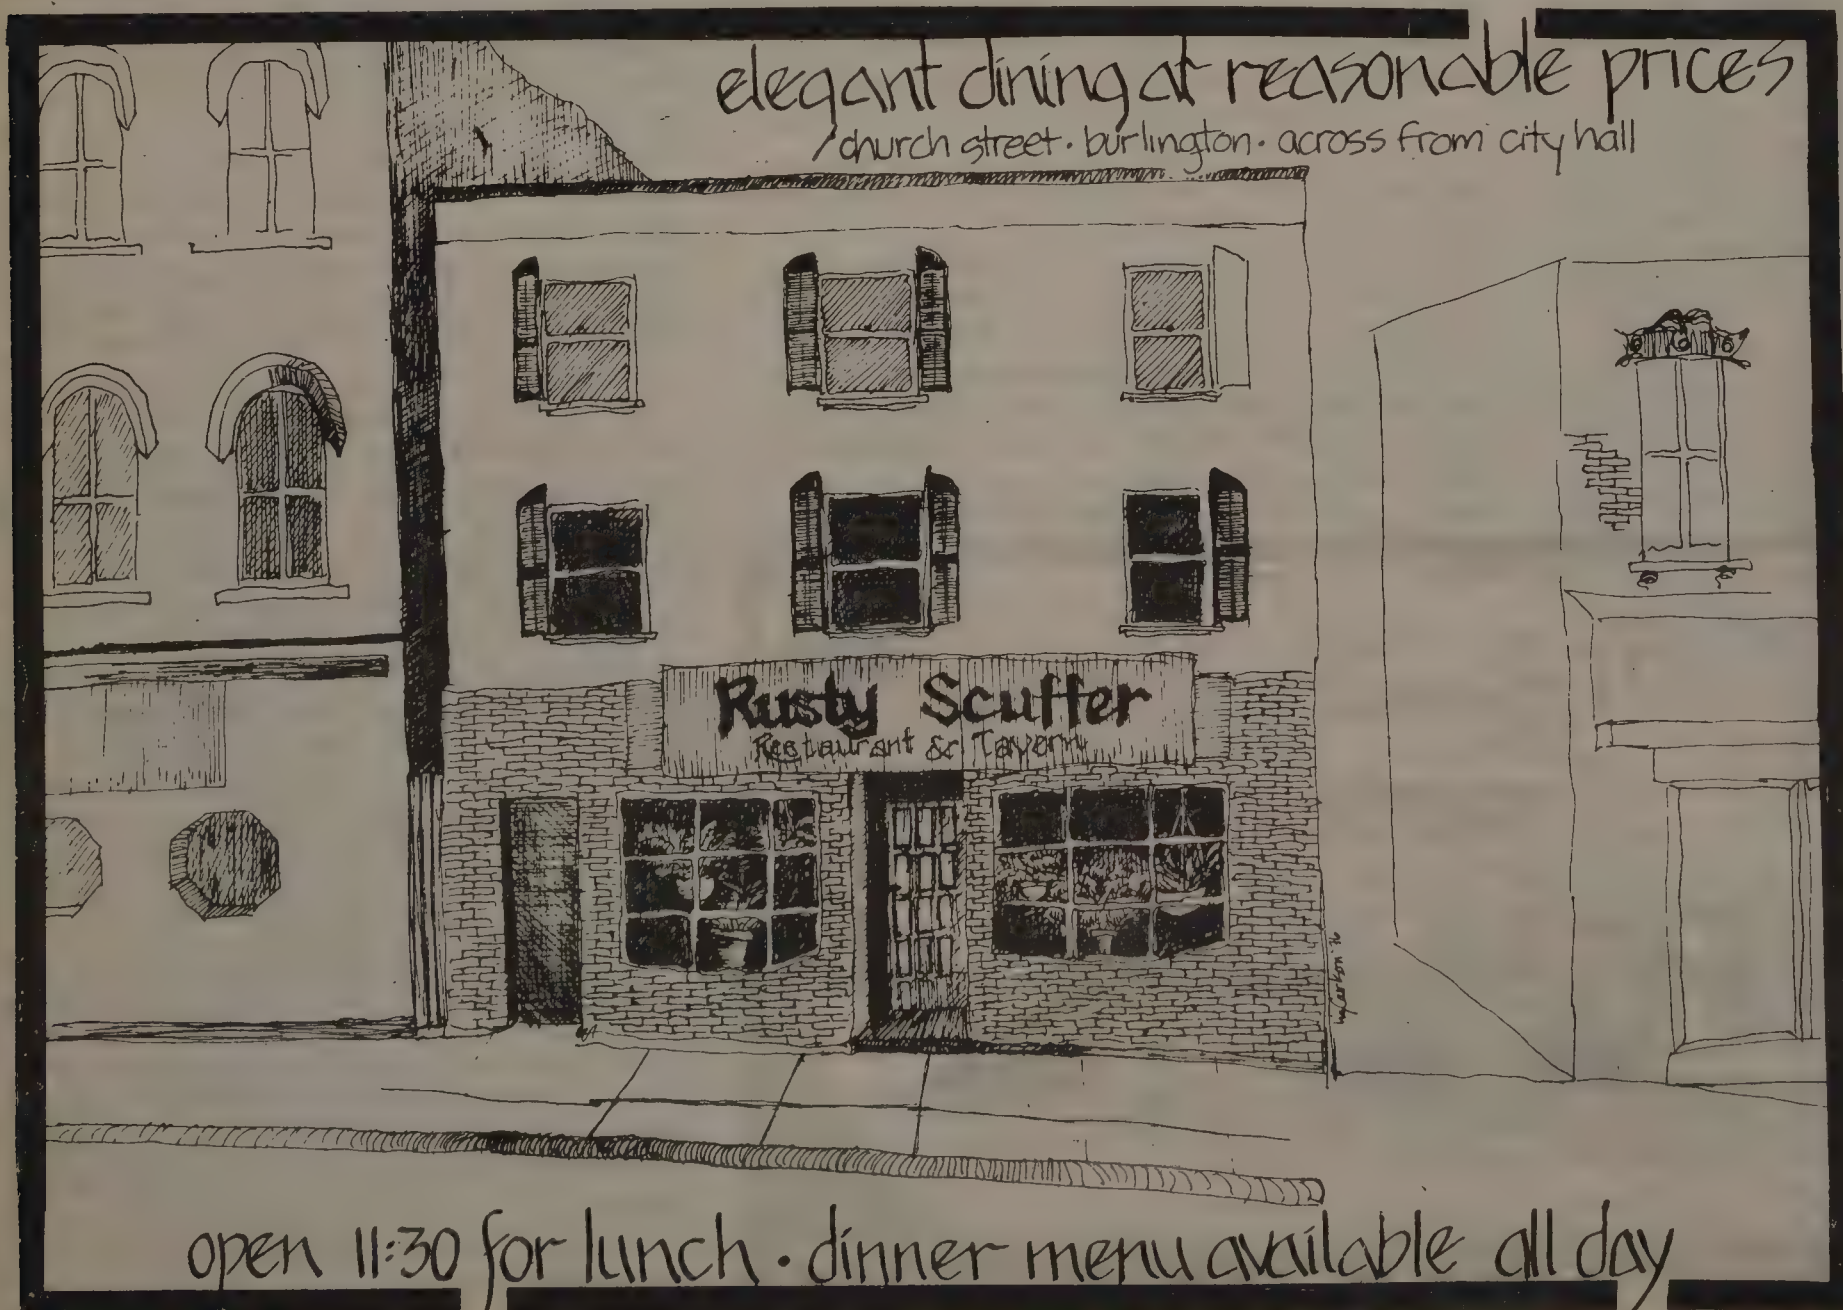 elegant dining at reasonable prices
church street · burlington · across from city hall
Rusty Scuffer
Restaurant & Tavern
open 11:30 for lunch · dinner menu available all day